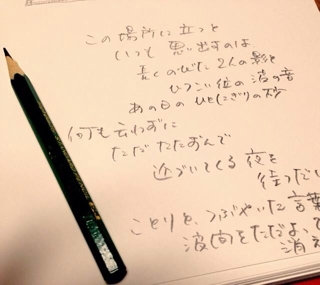 この場所に立つと
いつも思い出すのは
長くのびた2人の影と
ひつこい位の波の音
あの日のひとにぎりの砂
何も言わずに
ただたたずんで
近づいてくる夜を
待つだけ
ことりと、つぶやいた言葉
波間をただよって
消え